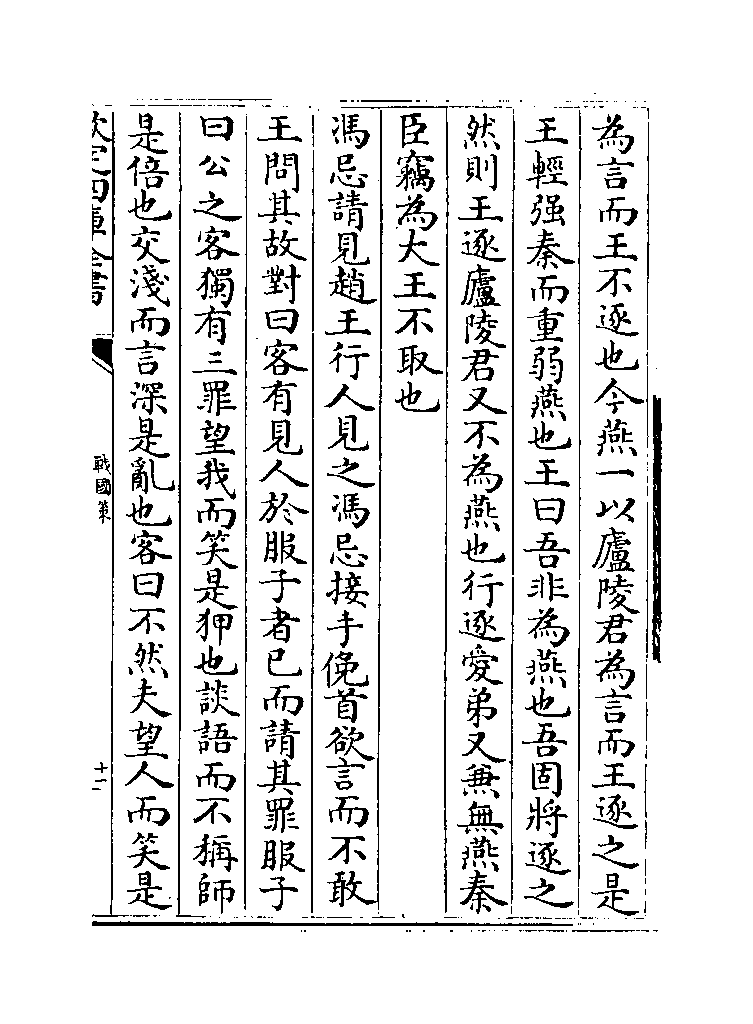 為言而王不逐也今燕一以廬陵君為言而王逐之是
王輕强秦而重弱燕也王曰吾非為燕也吾固將逐之
然則王逐廬陵君又不為燕也行逐愛弟又兼無燕秦
臣竊為大王不取也
馮忌請見趙王行人見之馮忌接手俛首欲言而不敢
王問其故對曰客有見人於服子者已而請其罪服子
曰公之客獨有三罪望我而笑是狎也談語而不稱師
是倍也交淺而言深是亂也客曰不然夫望人而笑是
欽定四庫全書
戰國策
十一